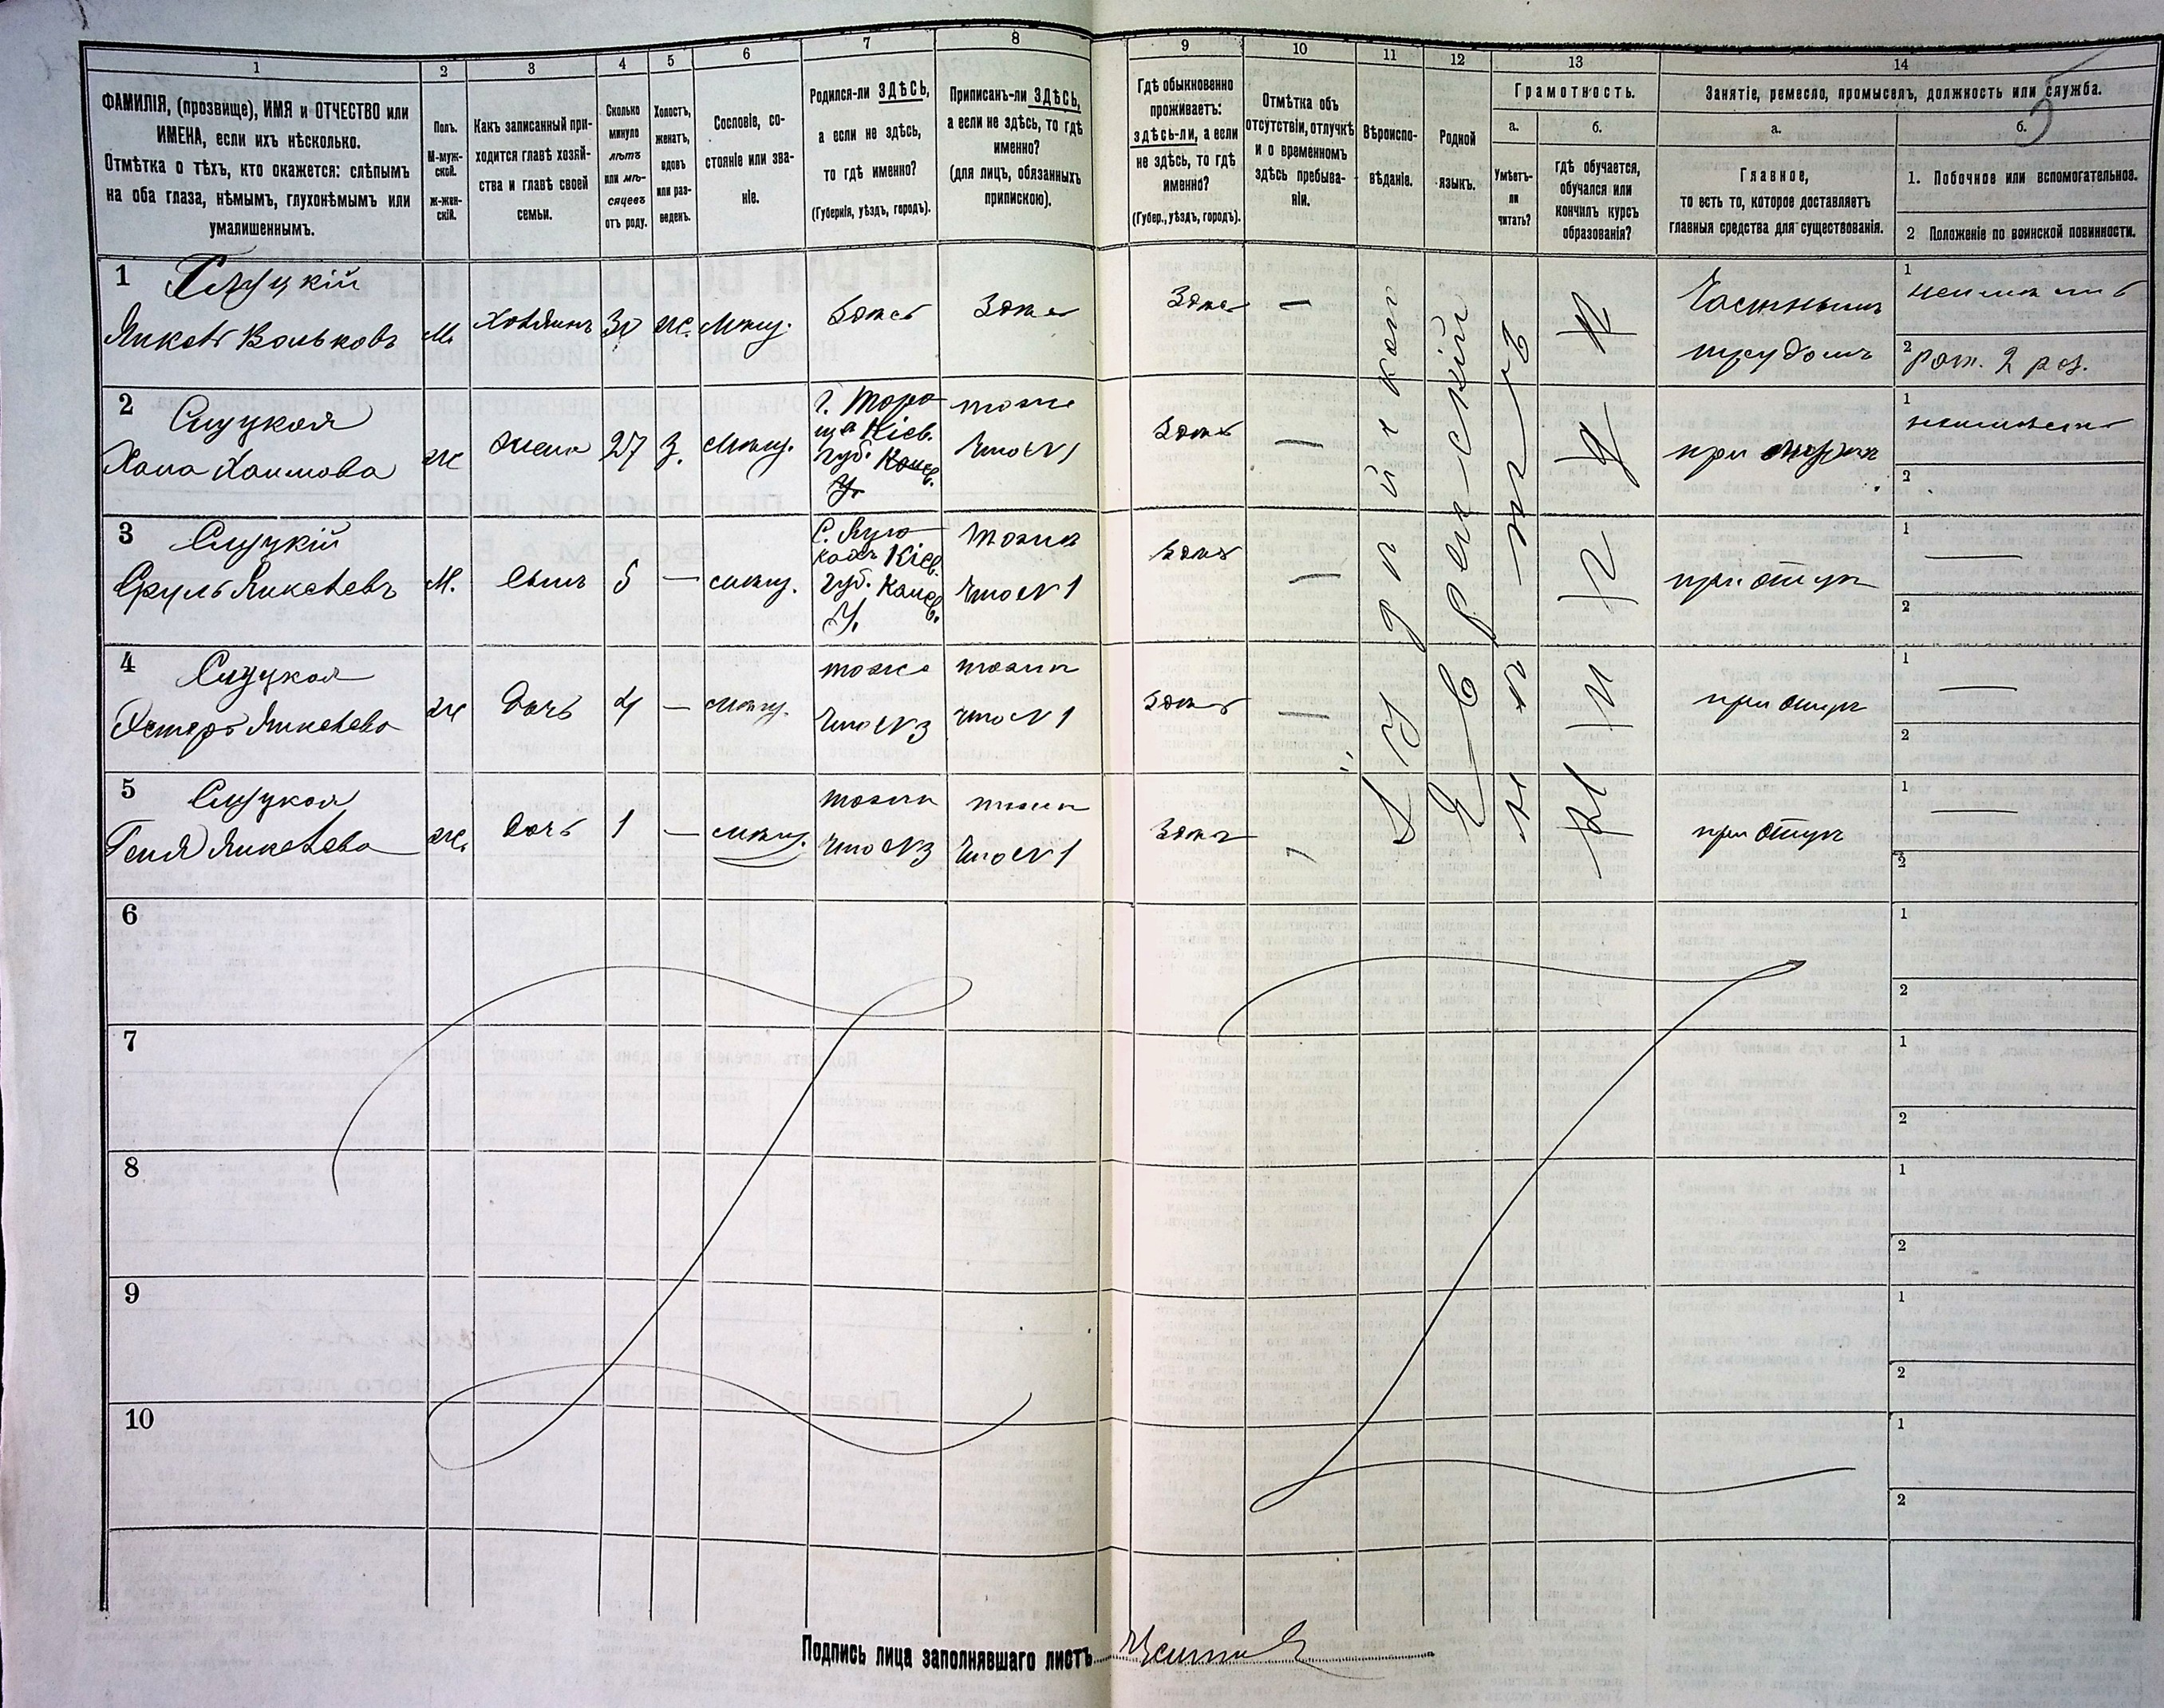 1
2
3
4
5
6
7
8
ФАМИЛІЯ, (прозвище), ИМЯ и ОТЧЕСТВО или
ИМЕНА, если ихъ нѣсколько.
Отмѣтка о тѣхъ, кто окажется: слѣпымъ
на оба глаза, нѣмымъ, глухонѣмымъ или
умалишеннымъ.
Полъ.
М-муж-
ской.
ж-жен-
скій.
Какъ записанный при-
ходится главѣ хозяй-
ства и главѣ своей
семьи.
Сколько
минуло
лѣтъ
или мѣ-
сяцевъ
отъ роду.
Холостъ,
женатъ,
вдовъ
или раз-
веденъ.
Сословіе, со-
стояніе или зва-
ніе.
Родился-ли ЗДѢСЬ,
а если не здѣсь,
то гдѣ именно?
(Губернія, уѣздъ, городъ).
Приписанъ-ли ЗДѢСЬ,
а если не здѣсь, то гдѣ
именно?
(для лицъ, обязанныхъ
припискою).
9
10
11
12
13
14
Гдѣ обыкновенно
проживаетъ:
здѣсь-ли, а если
не здѣсь, то гдѣ
именно?
(Губер., уѣздъ, городъ).
Отмѣтка объ
отсутствіи, отлучкѣ
и о временномъ
здѣсь пребыва-
ніи.
Вѣроиспо-
вѣданіе.
Родной
языкъ.
Грамотность.
а.
б.
Умѣетъ-
ли
читать?
Гдѣ обучается,
обучался или
кончилъ курсъ
образованія?
Занятіе, ремесло, промыселъ, должность или служба.
5
а.
б.
Главное,
то есть то, которое доставляетъ
главныя средства для существованія.
1. Побочное или вспомогательное.
2 Положеніе по воинской повинности.
1
Слуцкій
Янкель Вольковъ
М.
Хозяинъ
30
ж.
Мѣщ.
Здѣсь
Здѣсь
Здѣсь
—
Частнымъ
трудомъ
1
2
рат. 2 раз.
2
Слуцкая
Хана Хаимова
ж
жена
27
З.
Мѣщ.
Кіев.
губ. Канев.
У.
тоже
что N 1
здѣсь
—
при мужѣ
1
2
3
Слуцкій
Сруль Янкелевъ
М.
Сынъ
5
—
мѣщ.
Кіев.
губ. Канев.
У.
тоже
что N 1
здѣсь
—
при отцѣ
1
—
2
4
Слуцкая
Эстеръ Янкелева
ж
Дочь
4
—
мѣщ.
тоже
что N 3
тоже
что N 1
здѣсь
—
при отцѣ
1
—
2
5
Слуцкая
Геня Янкелева
ж.
Дочь
1
—
мѣщ.
тоже
что N 3
тоже
что N 1
Здѣсь
—
Іудейское
Еврейскій
нѣтъ
при отцѣ
1
—
2
6
1
2
7
1
2
8
1
2
9
1
2
10
1
2
Подпись лица заполнявшаго листъ